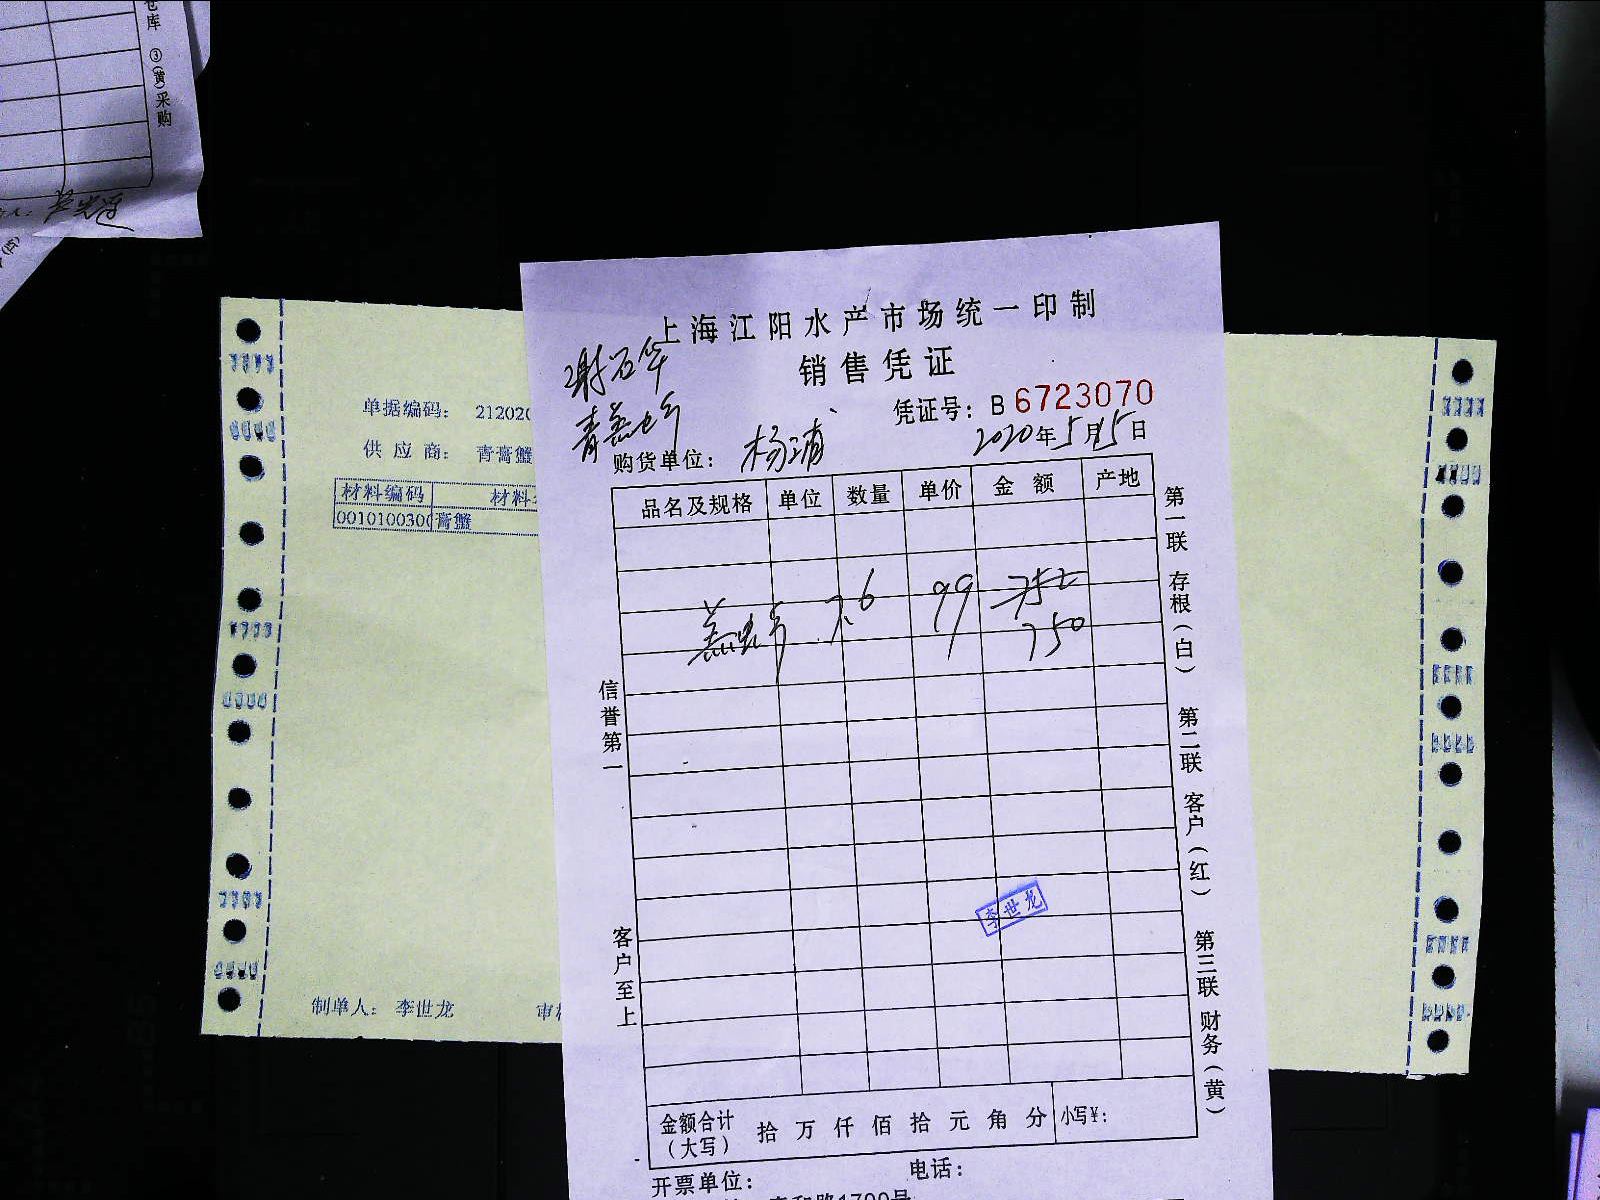 库 ③(黄)采购
上海江阳水产市场统一印制
销售凭证
凭证号: B 6723070
2020年5月15日
购货单位: 杨浦
品名及规格 单位 数量 单价 金额 产地
7.6 99 752
750
信誉第一
客户至上
第一联 存根(白) 第二联 客户(红) 第三联 财务(黄)
李世龙
金额合计(大写) 拾 万 仟 佰 拾 元 角 分 小写¥:
开票单位: 电话:
单据编码: 212020
供应商: 青膏蟹
材料编码 材料
0010100300 膏蟹
制单人: 李世龙 审